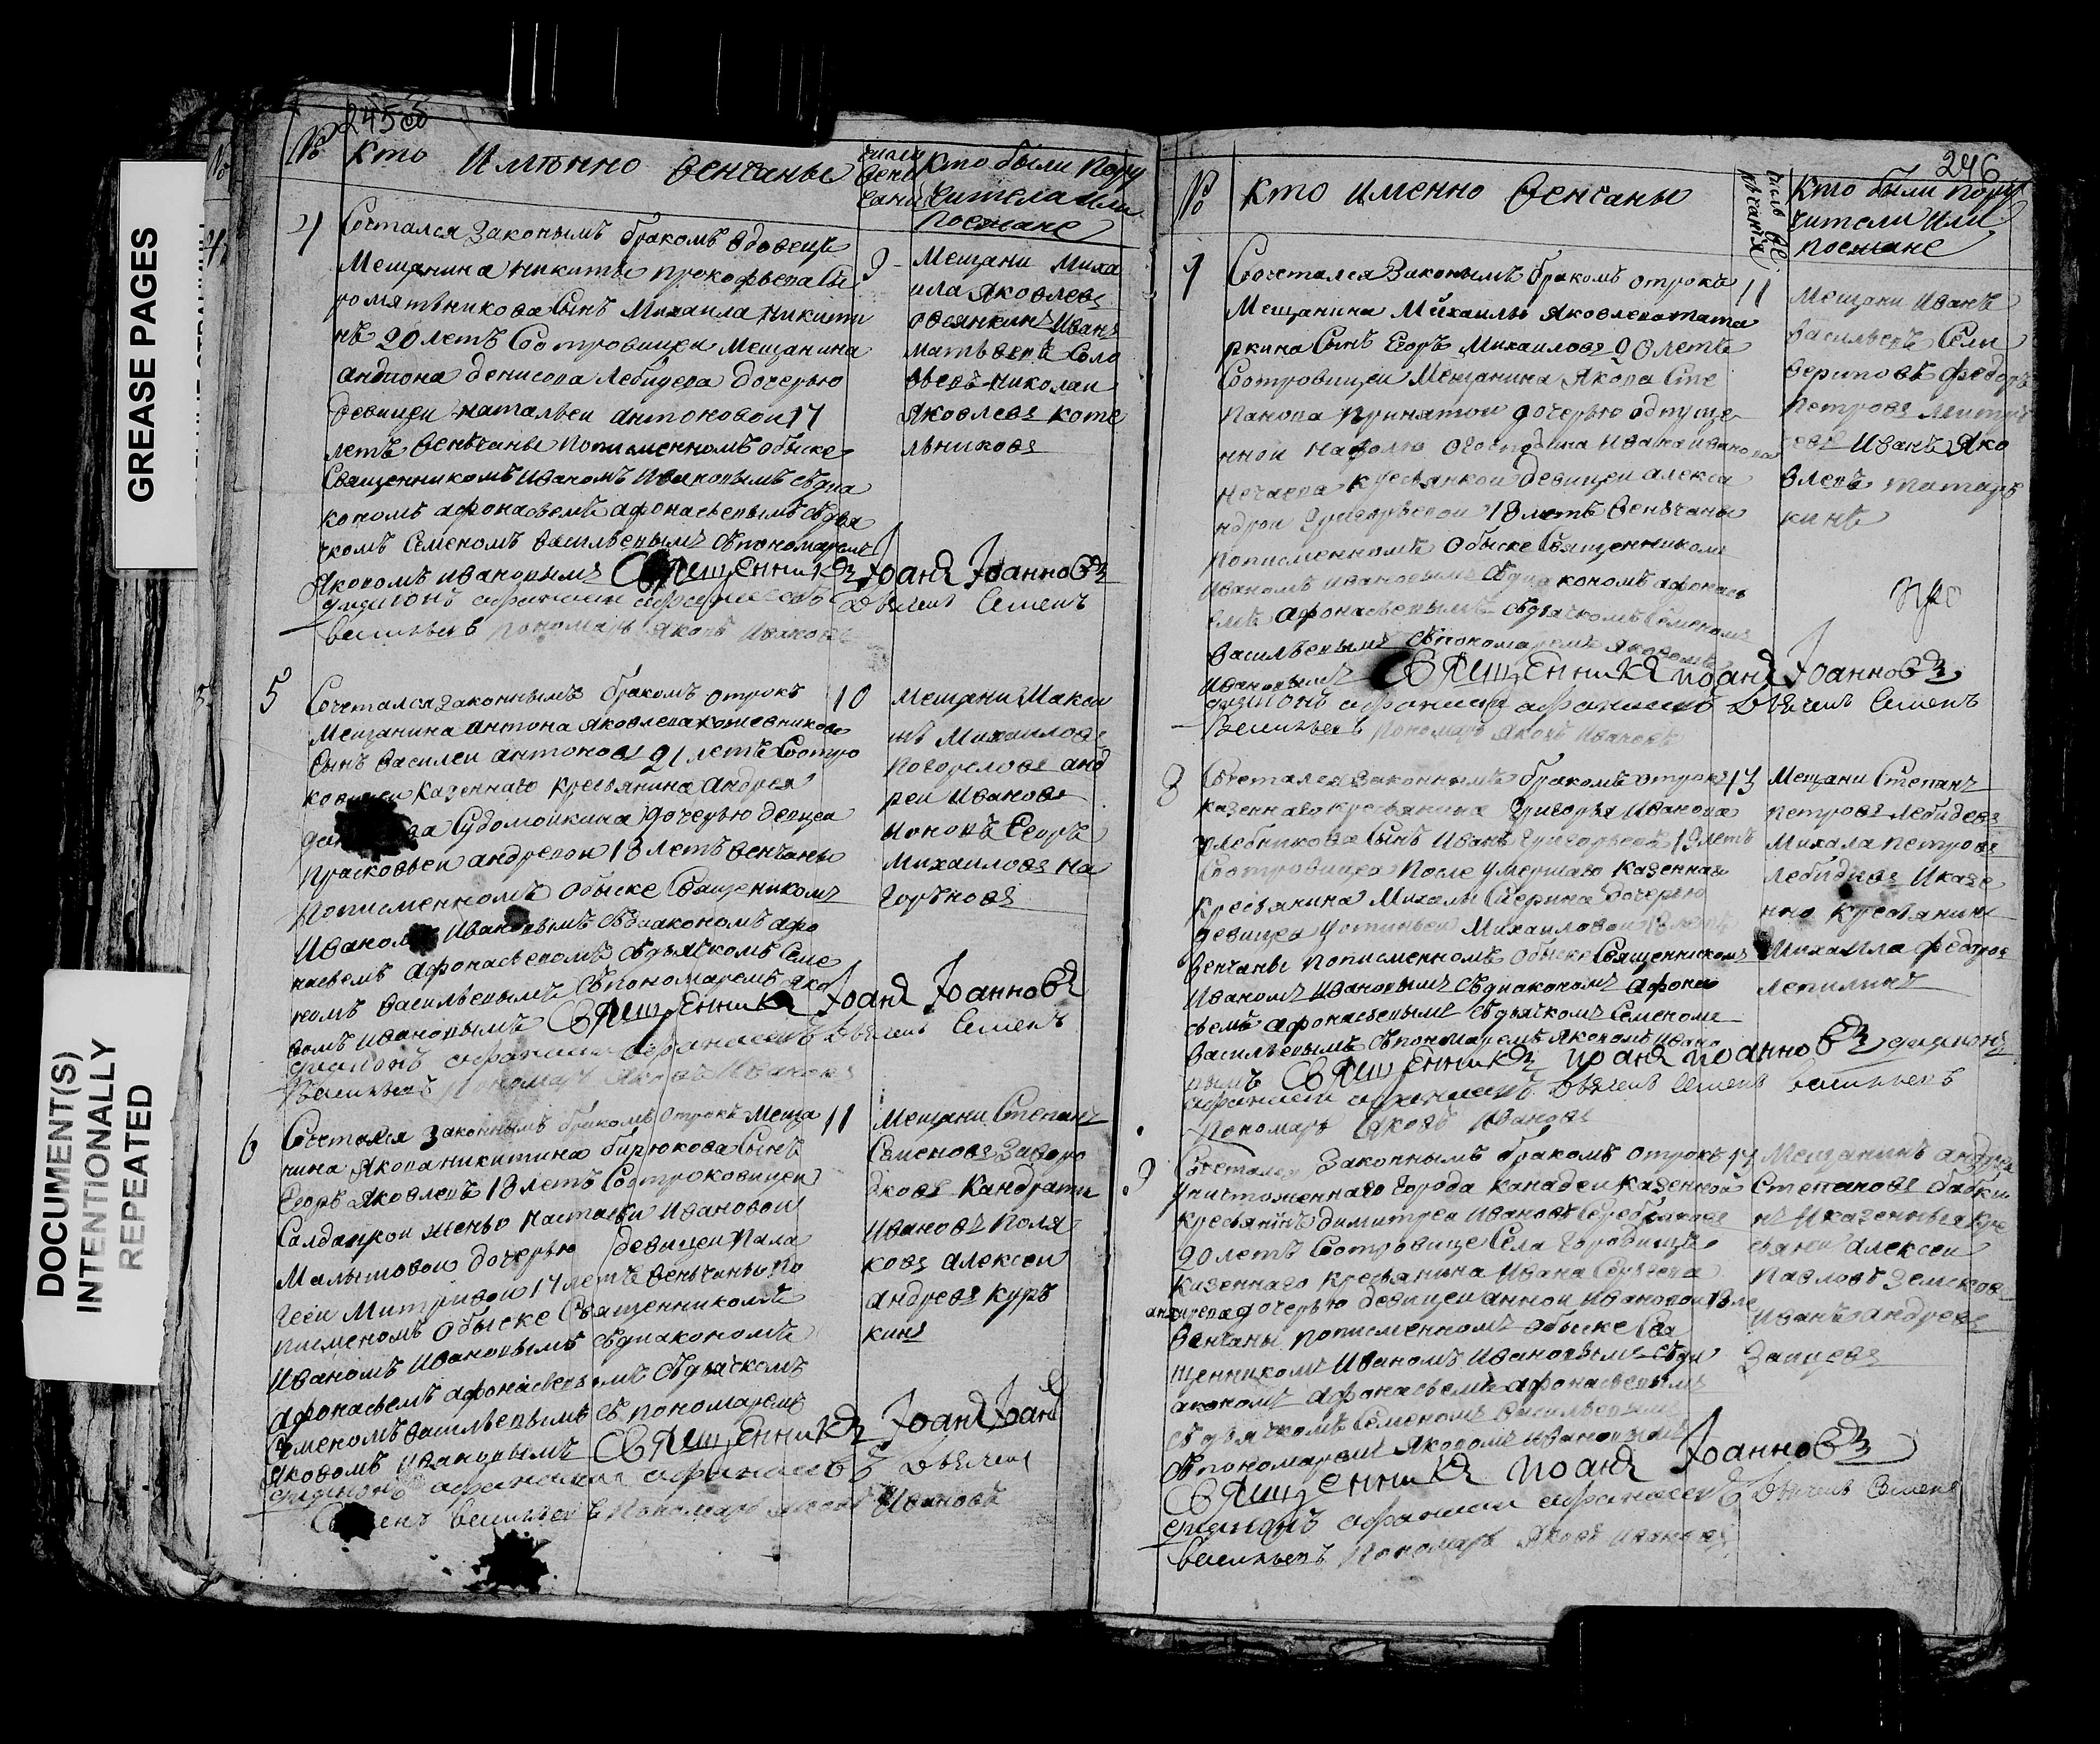 GREASE PAGES
DOCUMENT(S)
INTENTIONALLY
REPEATED
№
Кто Имянно Венчаны
Кто были Пору
чители или
поезжане
4
Сочтался Законымъ бракомъ вдовецъ
Мещанина Никиты Прокофьева Сы
ромятьникова Сынъ Михаила Никити
нъ 20 летъ Сотровицеи Мещанина
Антона денисова Лебидева дочерью
девицеи Натальеи антоновои 17
летъ венъчаны пописменномъ обыске
Священникомъ Иваномъ Ивановымъ съдиа
кономъ афонасьемъ афонасьевымъ съдья
чкомъ Семеномъ васильевымъ съпономаремъ
Яковомъ ивановымъ Священникъ Иоанъ Иоанновъ
диаконъ афанасии афанасьевъ Дьячекъ Семенъ
васильевъ пономарь Яковъ Ивановъ
9
Мещани Миха
ила Яковлевъ
Овсянкинъ Иванъ
Матьвеевъ Соло
вьевъ Николаи
Яковлевъ коте
льниковъ
5
Сочетался законнымъ бракомъ отрокъ
Мещанина Антона Яковлева кожевникова
Сынъ Василеи антоновъ 21 летъ Сотро
ковицеи казеннаго крестьянина Андрея
Судомоикина дочерью девицеи
Прасковьеи андревои 18 летъ венчаны
пописменномъ обыске Священикомъ
Иваномъ Ивановымъ съдиакономъ афо
насьемъ афонасьевомъ съдьячкомъ Семе
номъ васильевымъ съпономаремъ Яко
вомъ ивановымъ Священникъ Иоанъ Иоанновъ
диаконъ афанасии афанасьевъ Дьячекъ Семенъ
Васильевъ пономарь Яковъ Ивановъ
10
Мещани Макси
мъ Михаиловъ
Погореловъ анд
реи Ивановъ
Ионовъ Егоръ
Михаиловъ На
горъновъ
6
Сочетался Законнымъ бракомъ отрокъ Меща
нина Якова никитина бирюкова Сынъ
Егоръ Яковлевъ 18 летъ Сотроковицеи
Салдацкои женъю Настасьи Ивановои
Малышовои дочерью девицеи Пала
гееи Митривои 17 летъ веньчаны по
писменомъ обыске Священникомъ
Иваномъ Ивановымъ съдиакономъ
Афонасьемъ афонасьевымъ съдьячкомъ
Семеномъ Васильевымъ съ пономаремъ
Яковомъ Ивановымъ Священникъ Иоанъ Иоан
диаконъ афанасии афанасьевъ Дьячекъ
васильевъ Пономарь Яковъ Ивановъ
11
Мещани Степанъ
Семеновъ Заворо
тковъ Кандрати
Ивановъ Поля
ковъ Алексеи
андревъ Курь
кинъ
246
№
Кто именно Венчаны
Кто были пору
чители Или
поезжане
7
Сочетался Законнымъ бракомъ отрокъ
Мещанина Михаилы Яковлева тата
ркина Сынъ Егоръ Михаиловъ 20 летъ
Сотровицеи Мещанина Якова Сте
панова принятои дочерью отпуще
ннои наволю огосподина Ивана Иванова
Нечаева крестьянкои девицеи алекса
ндрои Григорьевои 18 летъ веньчаны
пописменномъ Обыске Священникомъ
Иваномъ ивановымъ съдиакономъ афонась
емъ афонасьевымъ съдьячкомъ Семеномъ
васильевымъ съпономаремъ Яковомъ
ивановымъ Священникъ Иоанъ Иоанновъ
диаконъ афанасии афанасьевъ Дьячекъ Семенъ
Васильевъ пономарь Яковъ Ивановъ
11
Мещани Иванъ
Васильевъ Сели
верстовъ Федоръ
Петровъ
Иванъ Яко
влевъ татарь
кинъ
8
Сочетался законнымъ бракомъ отрокъ
казеннаго крестьянина Григорья Иванова
хлебникова Сынъ Иванъ Григорьевъ 19 летъ
Сотровицеи После умершаго казеннаго
крестьянина Михаилы дочерью
девицеи устиньеи Михаиловои 18 летъ
венчаны пописменномъ обыске Священникомъ
Иваномъ Ивановымъ съдиакономъ афона
сьемъ афонасьевымъ съдьячкомъ Семеномъ
васильевымъ съпономаремъ Яковомъ ивано
вымъ Священникъ Иоанъ Иоанновъ диаконъ
афанасии афанасьевъ Дьячекъ Семенъ Васильевъ
Пономарь Яковъ Ивановъ
13
Мещани Степанъ
петровъ Лебидевъ
Михаила петровъ
Лебидевъ Иказе
нно крестьянинъ
Михаила Федоровъ
лепилинъ
9
Сочетался Законнымъ бракомъ отрокъ
Уничтоженнаго города Канадеи казеннои
крестьянинъ димитреи Ивановъ Серебряковъ
20 летъ Сотровице Села Городище
казеннаго крестьянина Ивана
дочерью девицеи анной Ивановои 18 ле
Венчаны пописменномъ обыске Свя
щенникомъ Иваномъ Ивановымъ съди
акономъ афонасьемъ афонасьевымъ
съдьячкомъ Семеномъ васильевымъ
съпономаремъ Яковомъ Ивановымъ
Священникъ Иоанъ Иоанновъ
диаконъ афанасии афанасьевъ Дьячекъ Семенъ
Васильевъ Пономарь Яковъ Ивановъ
17
Мещанинъ андреи
Степановъ бабки
нъ Иказенныя кре
стьяни Алексеи
Павловъ Земсковъ
Иванъ андревъ
Заицевъ